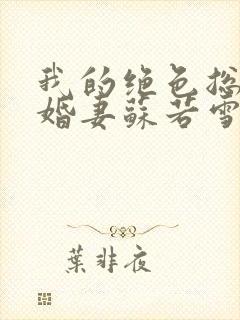 我的绝色总
婚妻苏若雪
葉非夜